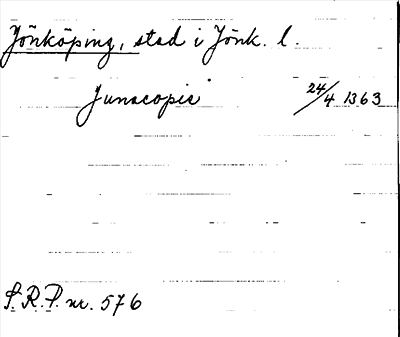 Jönköping, stad i Jönk. l.
Junacopie 24/4 1363
S.R.P. nr. 576